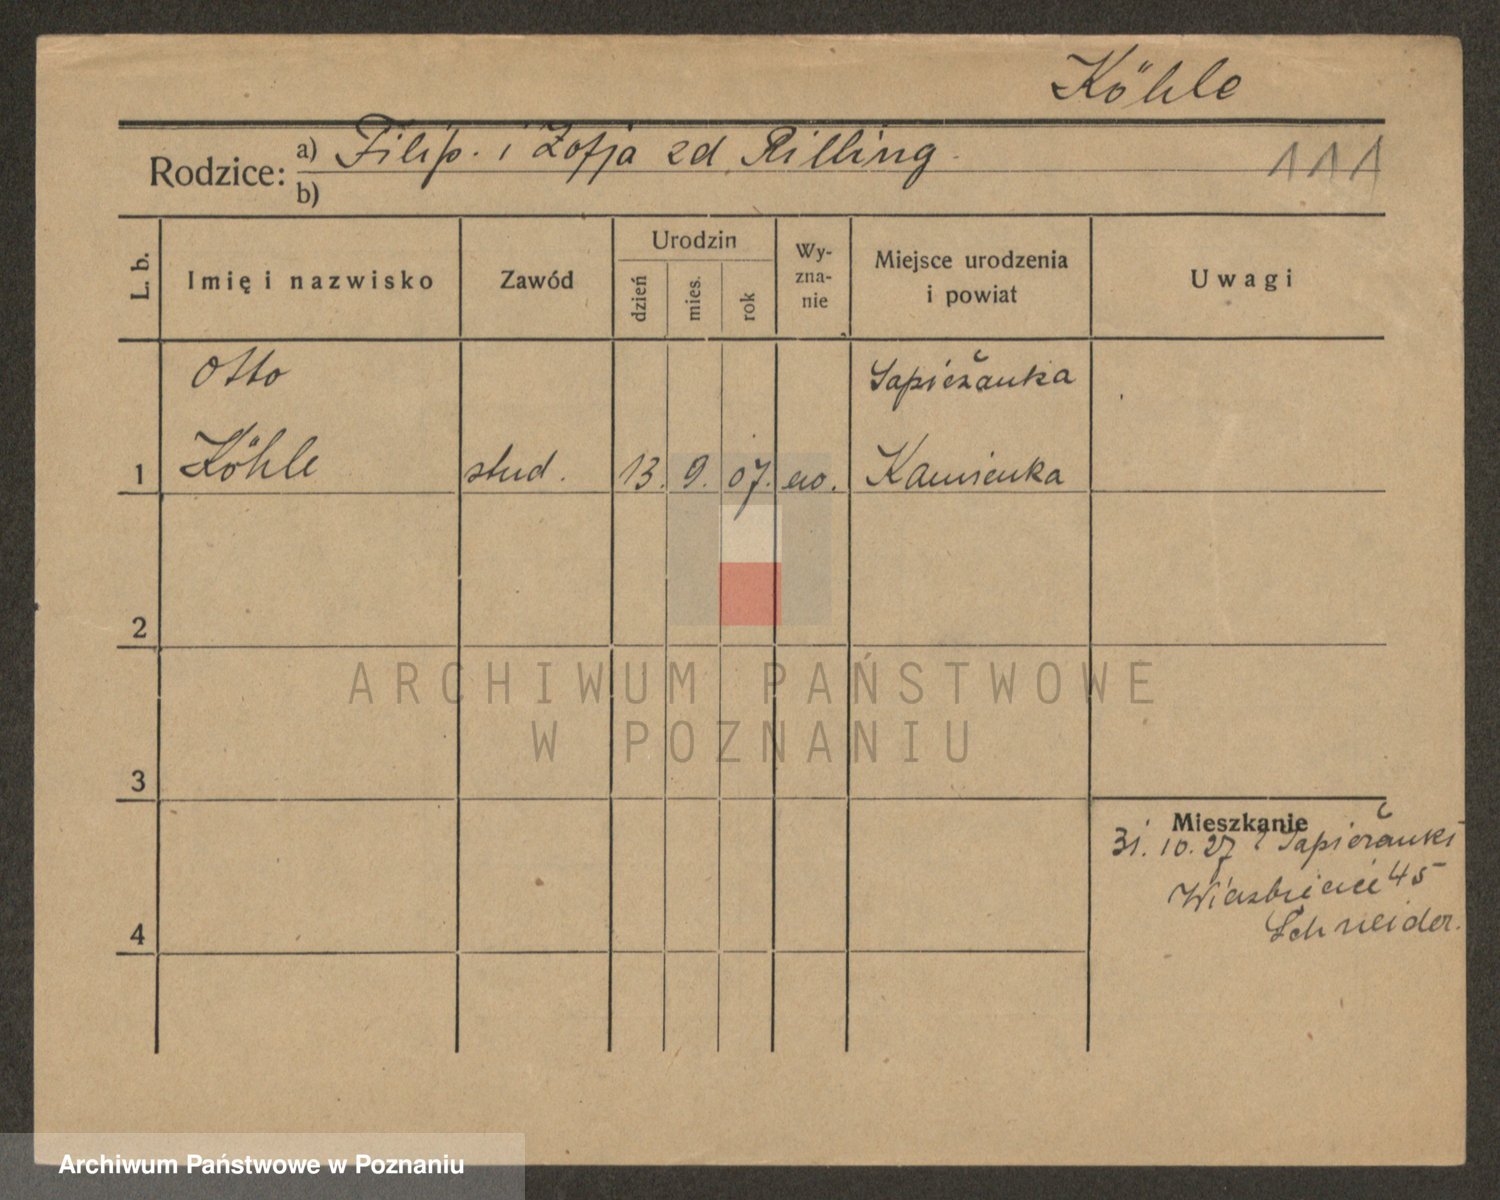 Köhle
Rodzice: a) Filip. i Zofja zd. Rilling.
b)
111
L. b.
Imię i nazwisko
Zawód
Urodzin
dzień
mies.
rok
Wy-
zna-
nie
Miejsce urodzenia
i powiat
Uwagi
Otto
Sapieżanka
1 Köhle stud. 13. 9. 07. ew. Kamienka
2
3
4
Mieszkanie
31. 10. 27 z Sapieżanki
Wierzbięcice 45
Schneider.
ARCHIWUM PAŃSTWOWE
W POZNANIU
Archiwum Państwowe w Poznaniu